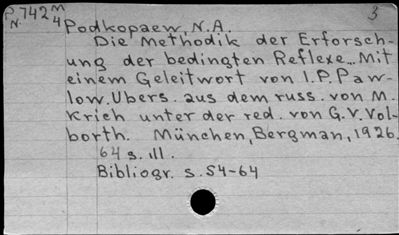 P.742 M 3
N. 4
Podkopaew, N.A.
Die Methodik der Erforsch-
ung der bedingten Reflexe... Mit
einem Geleitwort von I.P. Paw-
low. Übers. aus dem russ. von M.
Krich unter der red. von G.V. Vol-
borth. München, Bergman, 1926.
64 s. ill.
Bibliogr. s. 54-64